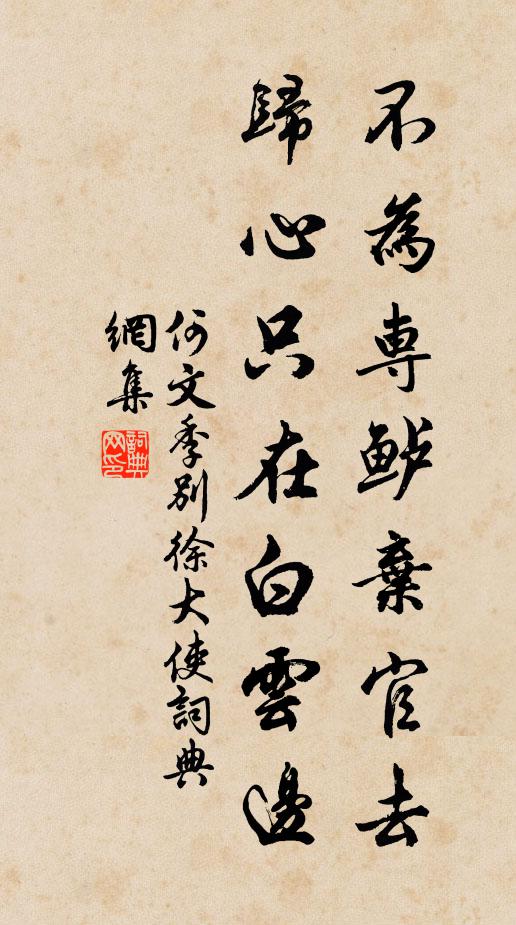 不為專鲈棄官去
歸心只在白雲邊
何文季別徐大使詞典
網集
詞典
网印